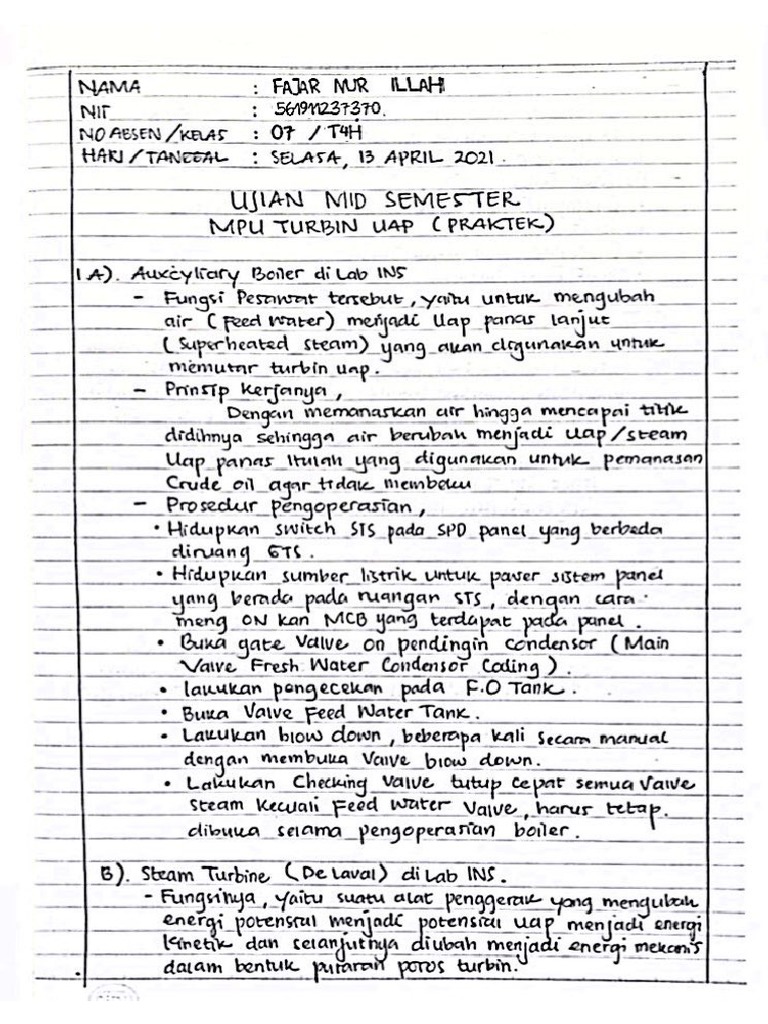 NAMA : FAJAR NUR ILLAHI
NIT : 561911237370.
NO ABSEN/KELAS : 07 / T4H
HARI/TANGGAL : SELASA, 13 APRIL 2021.
UJIAN MID SEMESTER
MPU TURBIN UAP (PRAKTEK)
1 A). Auxcyliary Boiler di Lab INS
- Fungsi Pesawat tersebut, yaitu untuk mengubah
air (Feed Water) menjadi Uap panas lanjut
(Superheated steam) yang akan digunakan untuk
memutar turbin uap.
- Prinsip Kerjanya,
Dengan memanaskan air hingga mencapai titik
didihnya sehingga air berubah menjadi uap/steam
Uap panas itulah yang digunakan untuk pemanasan
Crude oil agar tidak membeku
- Prosedur pengoperasian,
• Hidupkan switch STS pada SPD panel yang berbeda
diruang STS.
• Hidupkan sumber listrik untuk paver sistem panel
yang berada pada ruangan STS, dengan cara
meng ON kan MCB yang terdapat pada panel.
• Buka gate Valve on pendingin condensor (Main
Valve Fresh Water Condensor Coding).
• lakukan pengecekan pada F.O Tank.
• Buka Valve Feed Water Tank.
• Lakukan blow down, beberapa kali secara manual
dengan membuka Valve blow down.
• Lakukan Checking Valve tutup cepat semua Valve
Steam Kecuali Feed Water Valve, harus tetap.
dibuka selama pengoperasian boiler.
B). Steam Turbine (De Laval) di Lab INS.
- Fungsinya, yaitu suatu alat penggerak yang mengubah
energi potensial menjadi potensial uap menjadi energi
kinetik dan selanjutnya diubah menjadi energi mekanis
dalam bentuk putaran poros turbin.